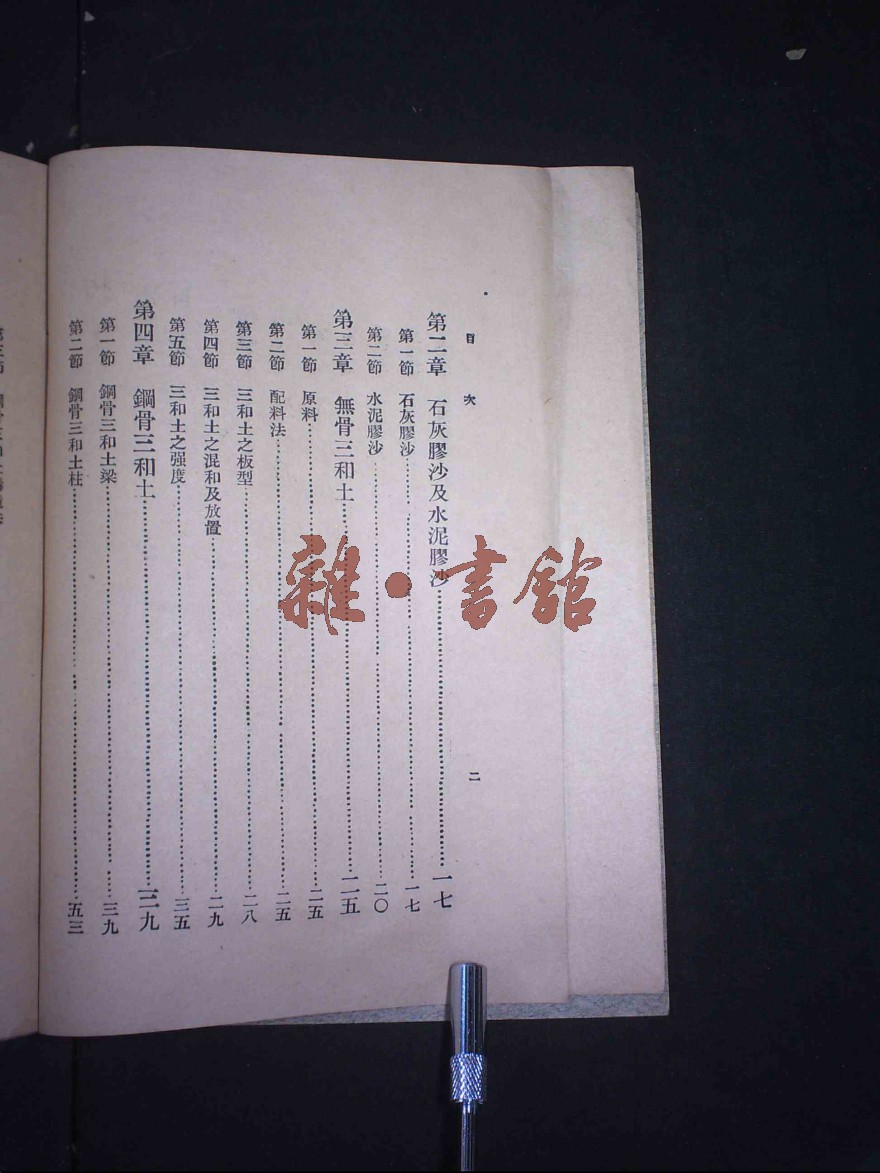 目次
二
第二章 石灰膠沙及水泥膠沙 一七
第一節 石灰膠沙 一七
第二節 水泥膠沙 二〇
第三章 無骨三和土 二五
第一節 原料 二五
第二節 配料法 二五
第三節 三和土之板型 二八
第四節 三和土之混和及放置 二九
第五節 三和土之强度 三五
第四章 鋼骨三和土 三九
第一節 鋼骨三和土梁 三九
第二節 鋼骨三和土柱 五三
雜·書館